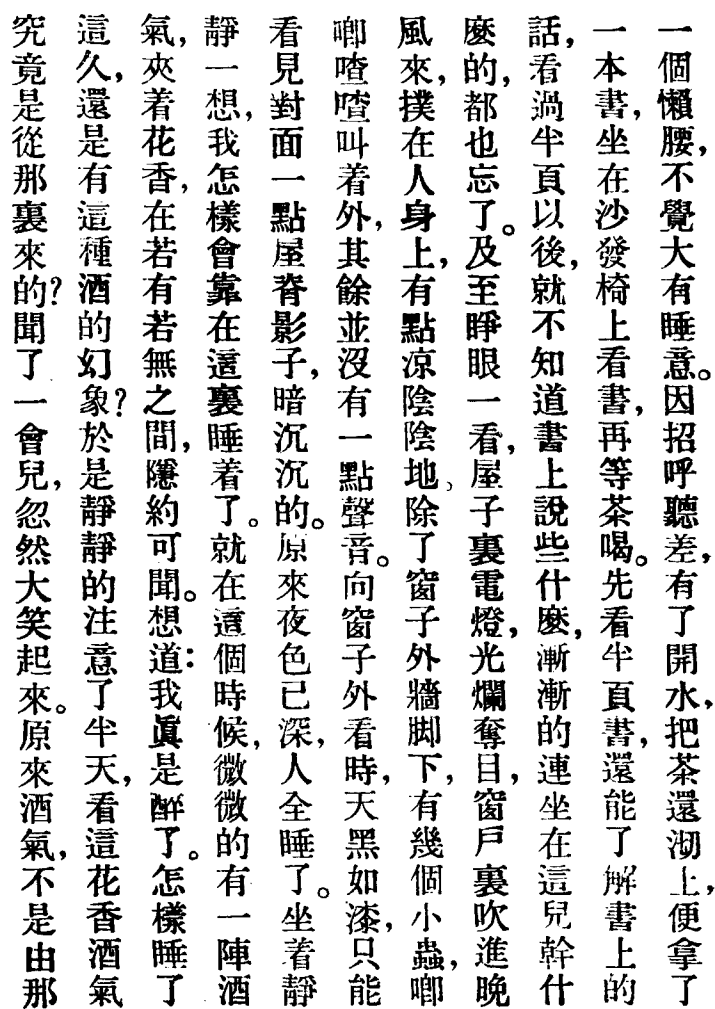 一個懶腰，不覺大有睡意。因招呼聽差，有了開水，把茶還沏上，便拿了
一本書，坐在沙發椅上看書，再等茶喝。先看半頁書，還能了解書上的
話，看過半頁以後，就不知道書上說些什麼，漸漸的連坐在這兒幹什
麼的，都也忘了。及至睜眼一看，屋子裏電燈，光爛奪目，窗戶裏吹進晚
風來，撲在人身上，有點涼陰陰地、除了窗子外牆脚下，有幾個小蟲，唧
唧喳喳叫着外，其餘並沒有一點聲音。向窗子外看時，天黑如漆，只能
看見對面一點屋脊影子，暗沉沉的。原來夜色已深，人全睡了。坐着靜
靜一想，我怎樣會靠在這裏睡着了。就在這個時候，微微的有一陣酒
氣，夾着花香，在若有若無之間，隱約可聞。想道：我眞是醉了。怎樣睡了
這久，還是有這種酒的幻象？於是靜靜的注意了半天，看這花香酒氣
究竟是從那裏來的？聞了一會兒，忽然大笑起來。原來酒氣，不是由那